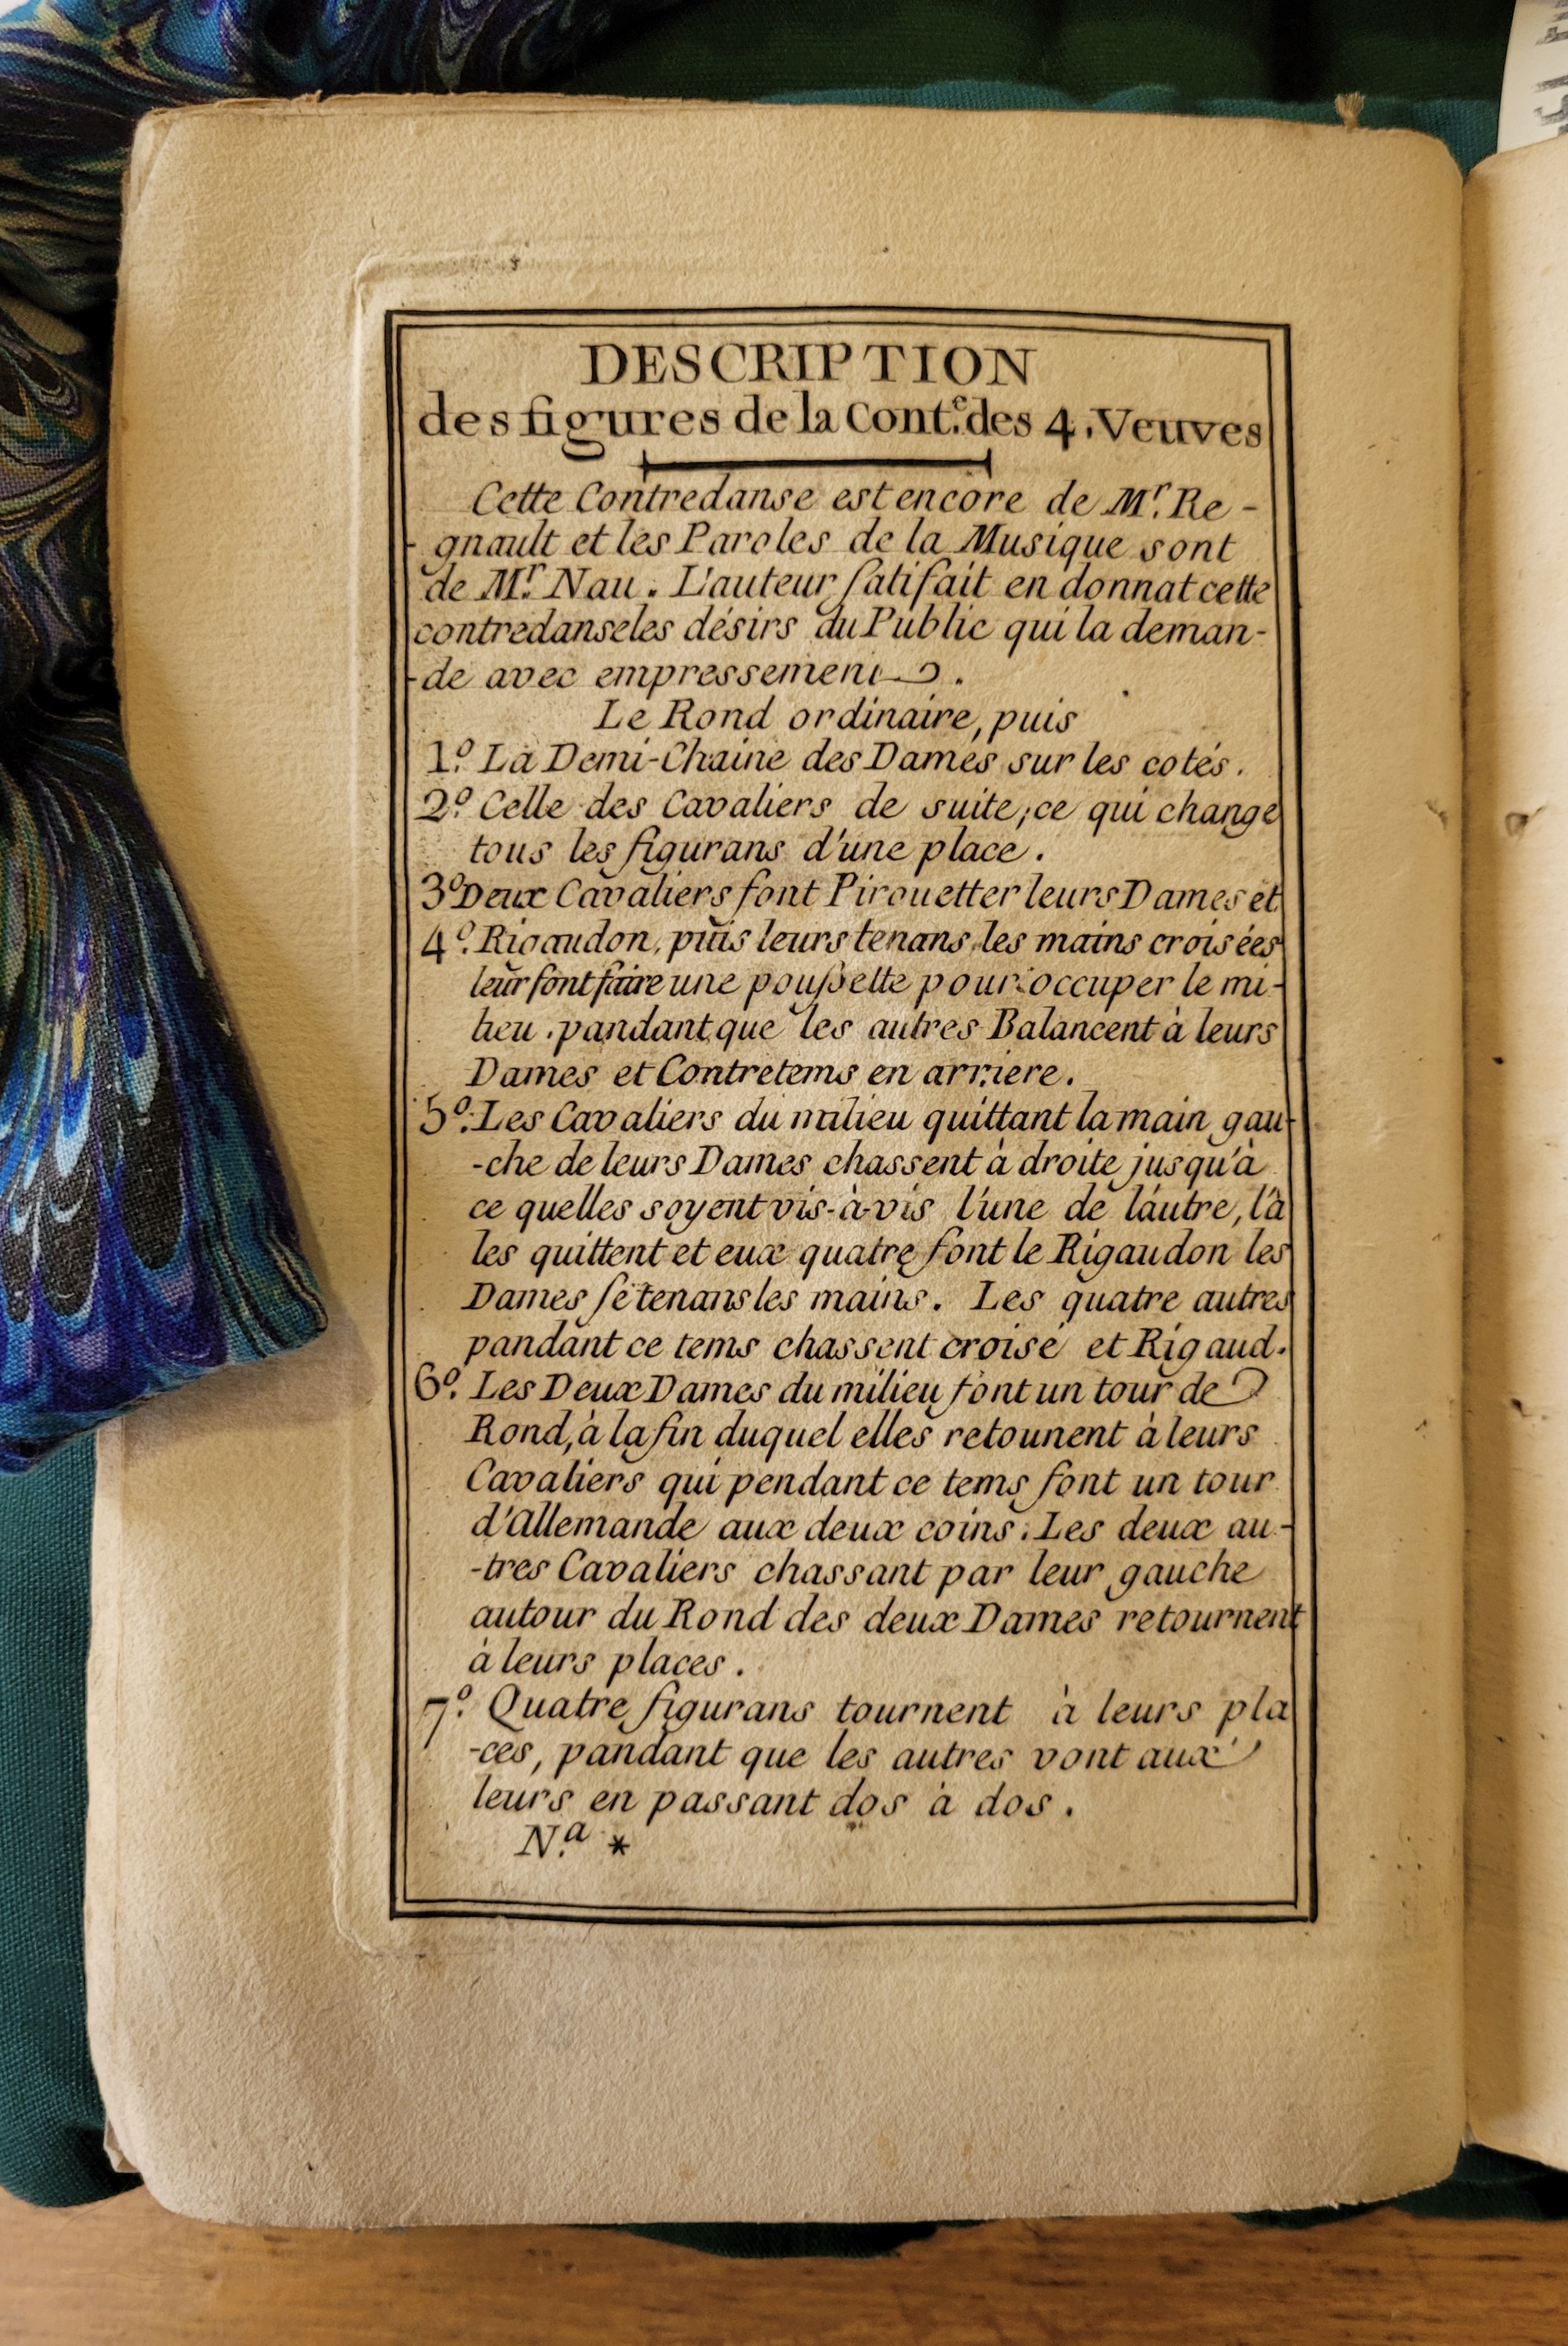 DESCRIPTION
des figures de la Cont.e des 4. Veuves
Cette Contredanse est encore de M.r Re-
gnault et les Paroles de la Musique sont
de M.r Nau. L'auteur satifait en donnat cette
contredanse les désirs du Public qui la deman-
-de avec empressement.
Le Rond ordinaire, puis
1.o La Demi-Chaine des Dames sur les cotés.
2.o Celle des Cavaliers de suite; ce qui change
tous les figurans d'une place.
3o Deux Cavaliers font Pirouetter leurs Dames et
4.o Rigaudon, puis leurs tenans les mains croisées
leur font faire une poussette pour occuper le mi-
lieu. pandant que les autres Balancent à leurs
Dames et Contretems en arriere.
5.o Les Cavaliers du milieu quittant la main gau-
-che de leurs Dames chassent à droite jusqu'à
ce quelles soyent vis-à-vis l'une de l'autre, l'à
les quittent et eux quatre font le Rigaudon les
Dames se tenans les mains. Les quatre autres
pandant ce tems chassent croisé et Rigaud.
6o. Les Deux Dames du milieu font un tour de
Rond, à la fin duquel elles retounent à leurs
Cavaliers qui pendant ce tems font un tour
d'Allemande aux deux coins. Les deux au-
-tres Cavaliers chassant par leur gauche
autour du Rond des deux Dames retournent
à leurs places.
7.o Quatre figurans tournent à leurs pla
-ces, pandant que les autres vont aux
leurs en passant dos à dos.
N.a *